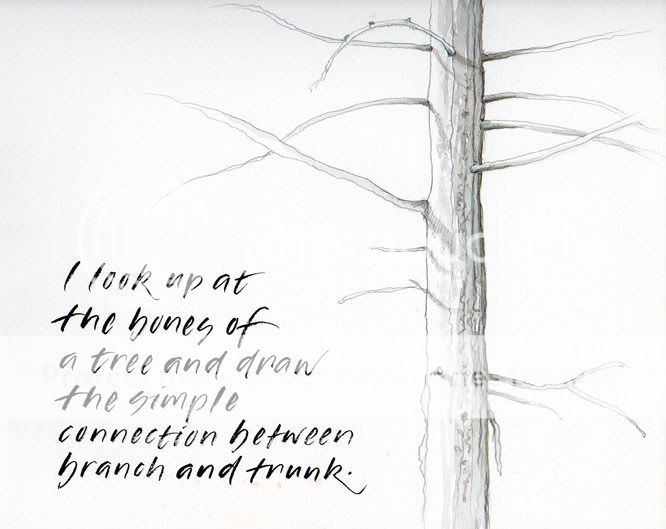 I look up at
the bones of
a tree and draw
the simple
connection between
branch and trunk.